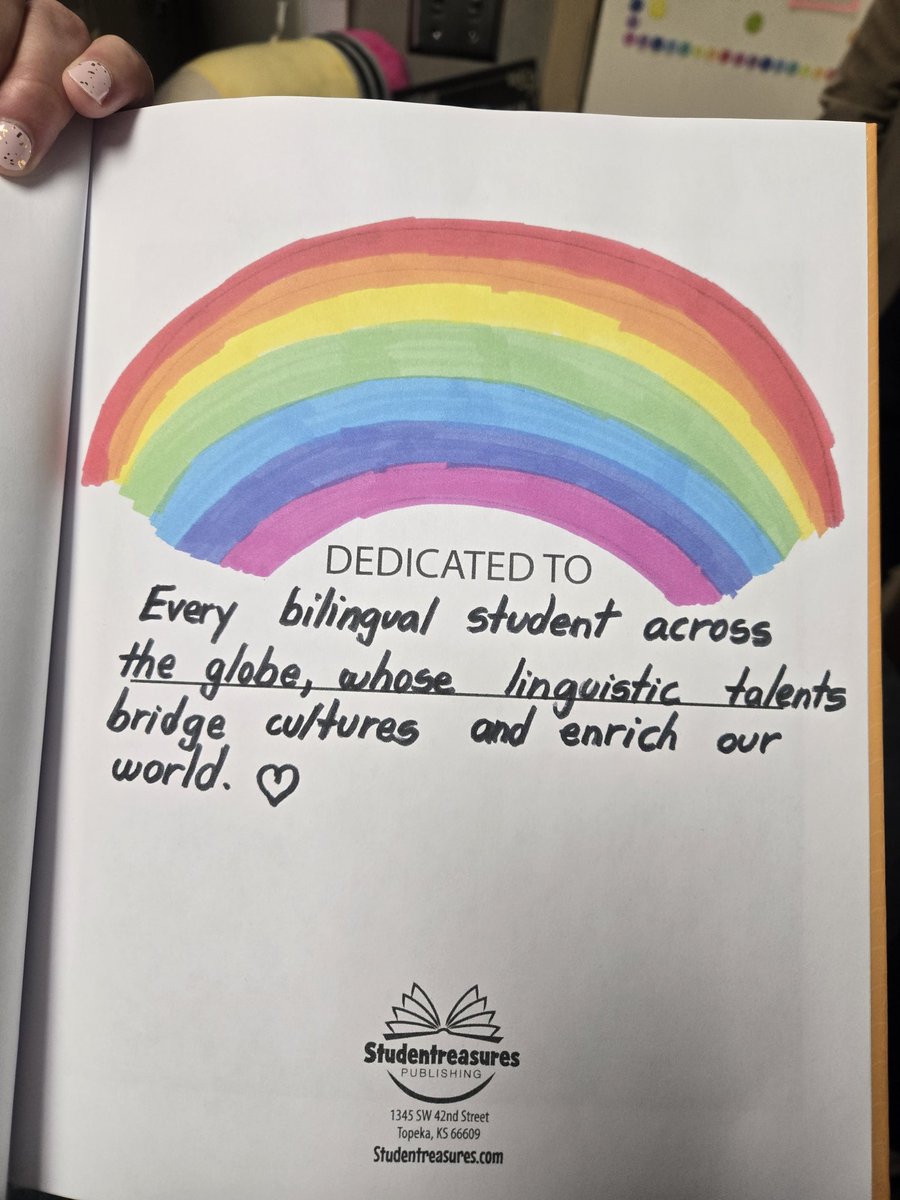 DEDICATED TO
Every bilingual student across
the globe, whose linguistic talents
bridge cultures and enrich our
world. ♡
Studentreasures
PUBLISHING
1345 SW 42nd Street
Topeka, KS 66609
Studentreasures.com